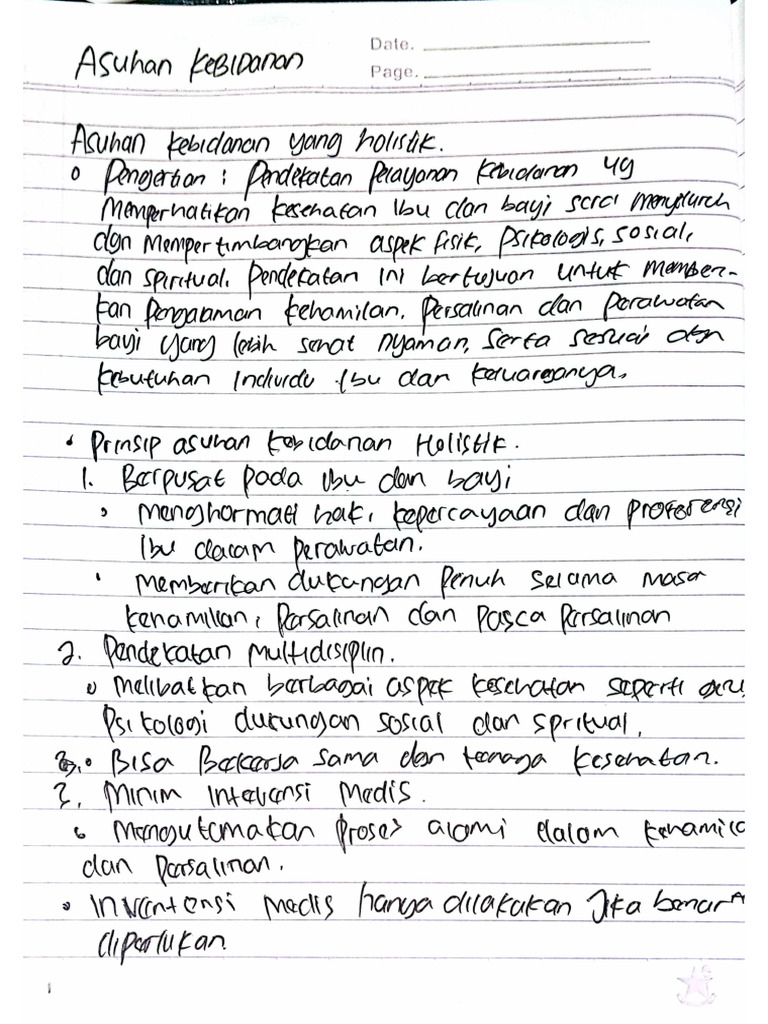 Asuhan Kebidanan
Date.
Page.
Asuhan kebidanan yang holistik.
o Pengertian : Pendekatan Pelayanan Kebidanan yg
memperhatikan kesehatan Ibu dan bayi secara menyeluruh
dgn mempertimbangkan aspek fisik, psikologis, sosial,
dan spiritual. Pendekatan ini bertujuan untuk member-
kan Pengalaman kehamilan, Persalinan dan perawatan
bayi yang lebih sehat nyaman, serta sesuai dgn
kebutuhan Individu Ibu dan keluarganya.
• Prinsip asuhan kebidanan Holistik.
1. Berpusat pada Ibu dan bayi
• menghormati hak, kepercayaan dan proferensi
Ibu dalam perawatan.
• memberikan dukungan penuh selama masa
kehamilan, Persalinan dan Pasca Persalinan
2. Pendekatan Multidisiplin.
o melibatkan berbagai aspek kesehatan seperti
Psikologi dukungan sosial dan spritual.
• Bisa Bekerja sama dgn tenaga kesehatan.
3. Minim Intervensi Medis.
• Mengutamakan proses alami dalam kehamila
dan Persalinan.
• Inventensi medis hanya dilakukan Jika benar^
diperlukan.